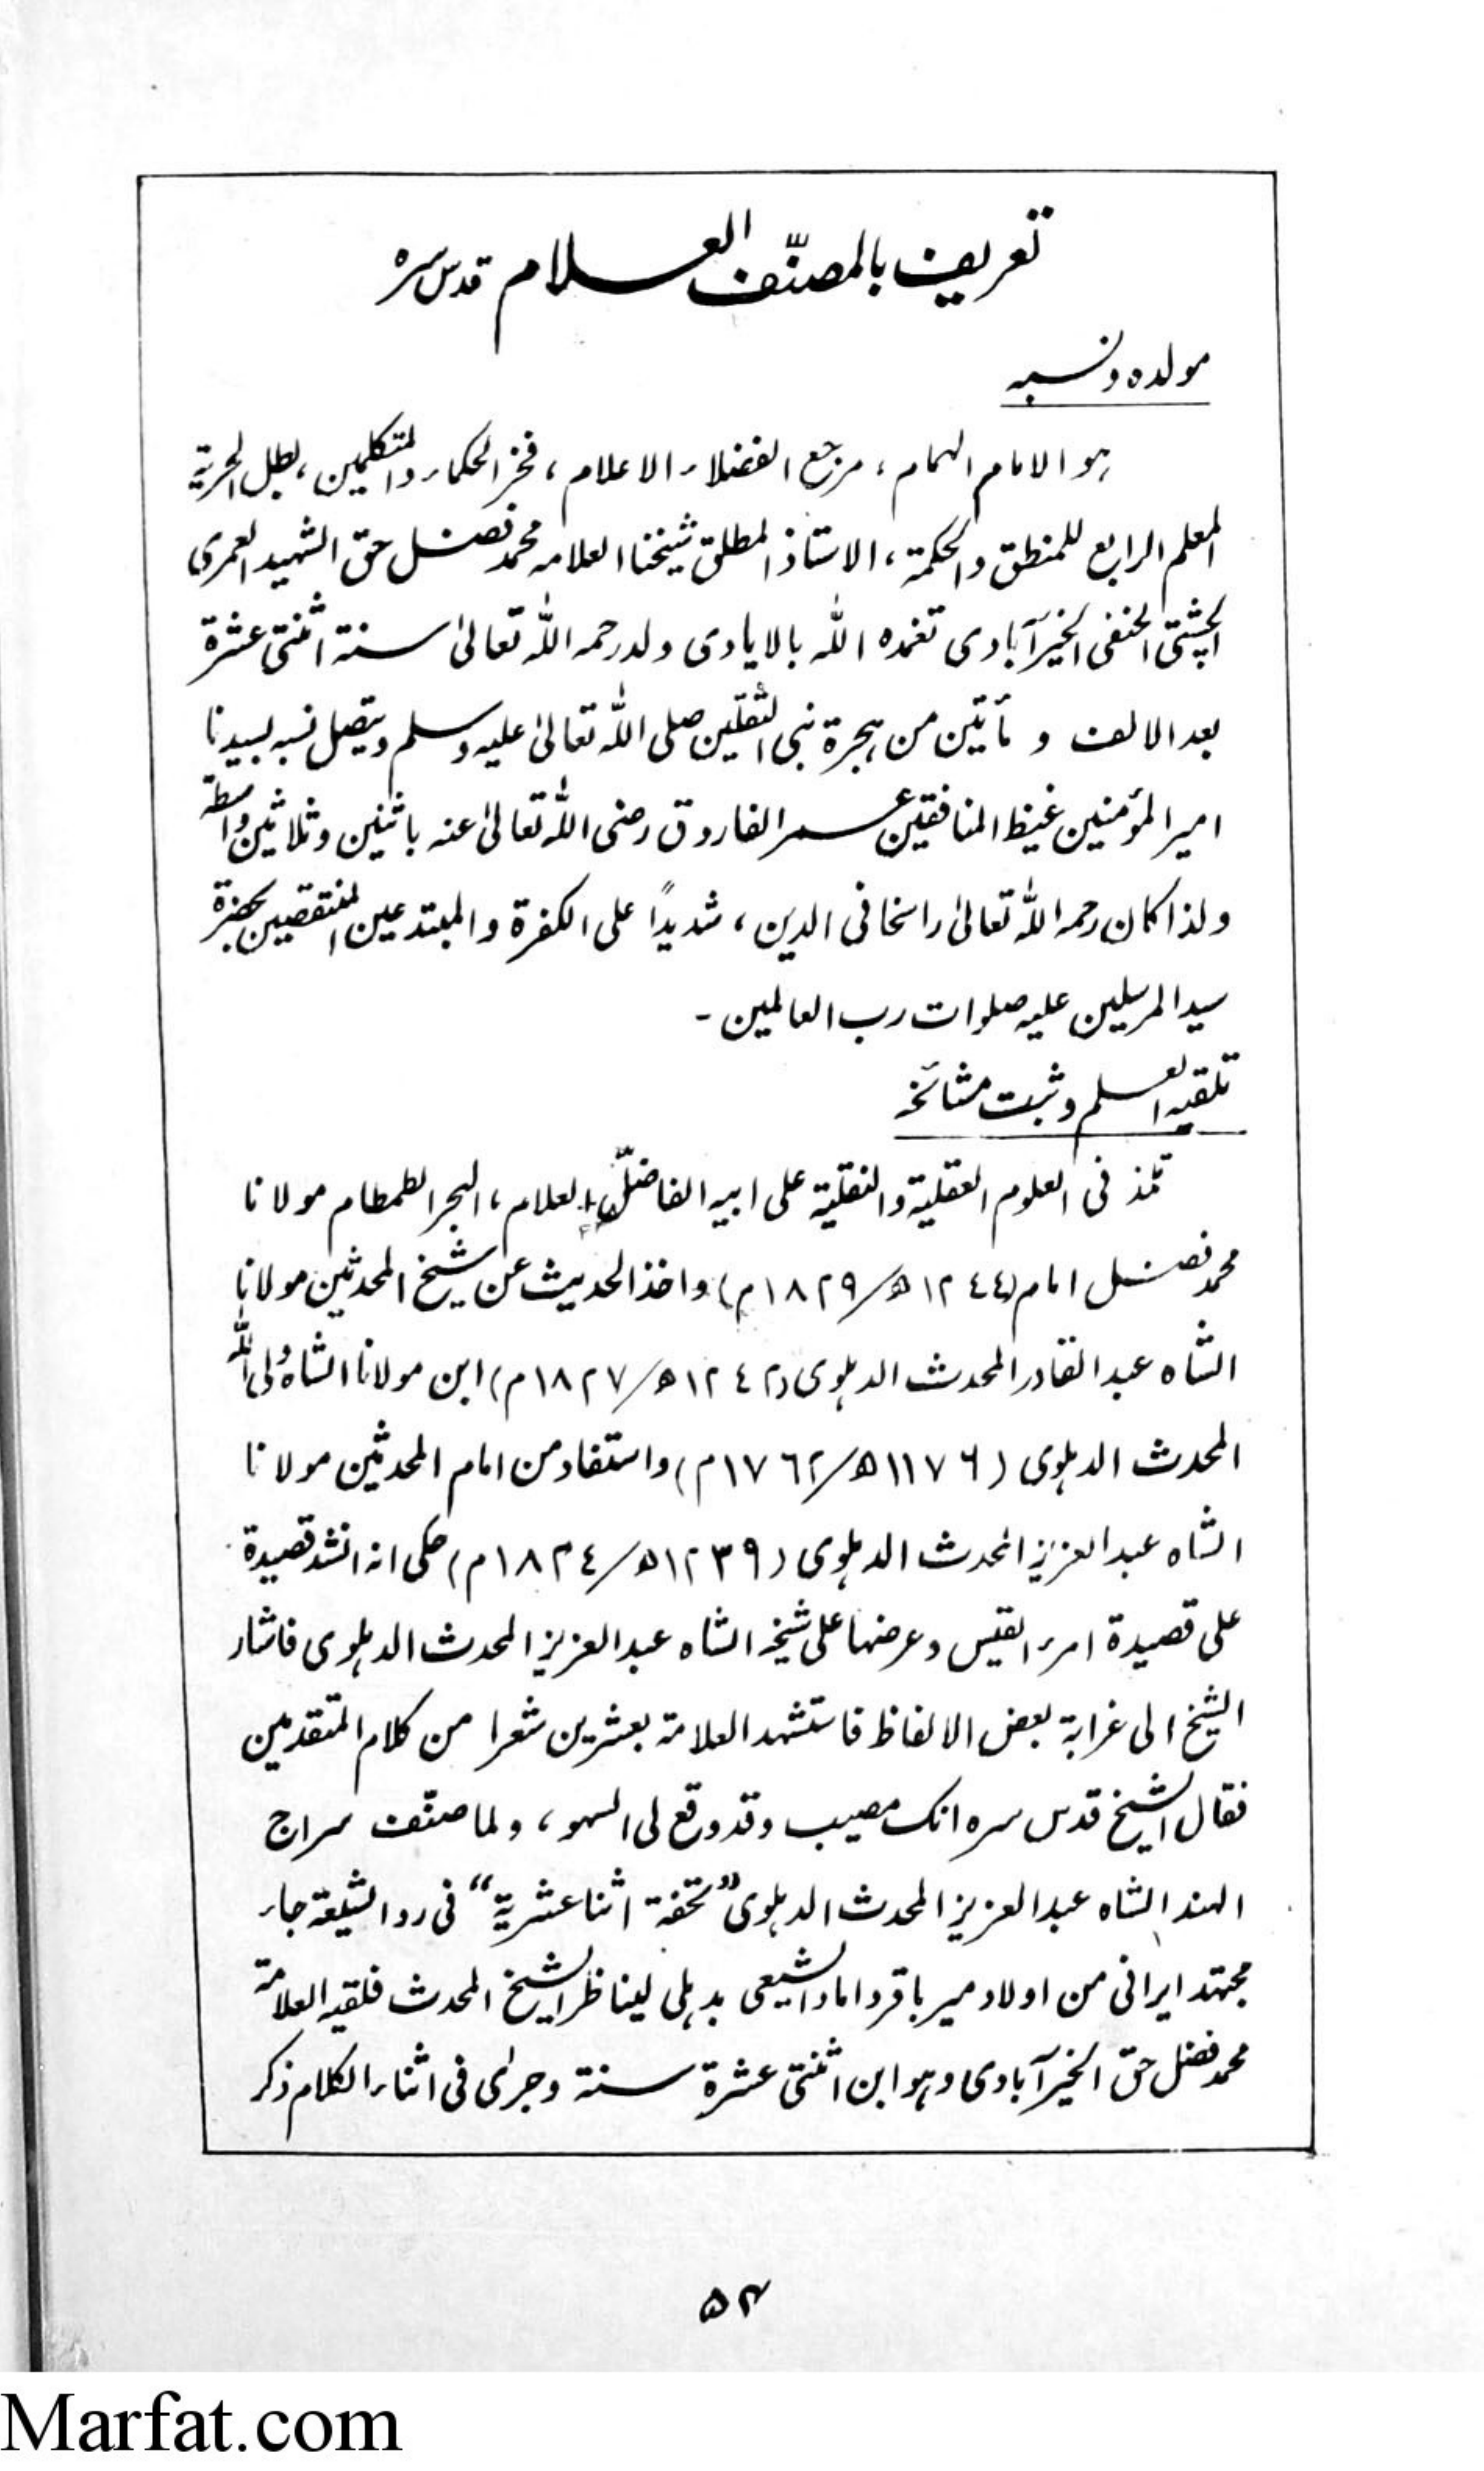 تعريف بالمصنّف العلام قدس سره
مولده ونسبه
ہو الامام الہمام، مرجع الفضلاء الاعلام، فخر الحكماء والمتكلمين، بطل الحرية
المعلم الرابع للمنطق والحكمة، الاستاذ المطلق شيخنا العلامه محمد فضل حق الشہيد العمرى
الچشتى الحنفى الخيرآبادى تغمده الله بالايادى ولد رحمه الله تعالىٰ سنة اثنتى عشرة
بعد الالف و مأتين من ہجرة نبى الثقلين صلى الله تعالىٰ عليه وسلم ويتصل نسبه بسيدنا
امير المؤمنين غيظ المنافقين عمر الفاروق رضى الله تعالىٰ عنه باثنين وثلاثين واسطة
ولذا كان رحمه الله تعالىٰ راسخا فى الدين، شديداً على الكفرة والمبتدعين المنتقصين بحضرة
سيد المرسلين عليه صلوات رب العالمين۔
تلقيه العلم وثبت مشائخه
تلمذ فى العلوم العقلية والنقلية على ابيه الفاضل العلام، البحر الطمطام مولانا
محمد فضل امام (١٢٤٤ھ/١٨٢٩م) واخذ الحديث عن شيخ المحدثين مولانا
الشاه عبد القادر المحدث الدہلوى (١٢٤٢ھ/١٨٢٧م) ابن مولانا الشاه ولى الله
المحدث الدہلوى (١١٧٦ھ/١٧٦٢م) واستفاد من امام المحدثين مولانا
الشاه عبد العزيز المحدث الدہلوى (١٢٣٩ھ/١٨٢٤م) حكى انه انشد قصيدة
على قصيدة امرء القيس وعرضہا على شيخه الشاه عبد العزيز المحدث الدہلوى فاشار
الشيخ الى غرابة بعض الالفاظ فاستشہد العلامة بعشرين شعرا من كلام المتقدمين
فقال الشيخ قدس سره انک مصيب وقد وقع لى السہو، ولما صنّف سراج
الہند الشاه عبد العزيز المحدث الدہلوى "تحفة اثنا عشرية" فى رد الشيعة جاء
مجتہد ايرانى من اولاد مير باقر داماد الشيعى بدہلى ليناظر الشيخ المحدث فلقيه العلامة
محمد فضل حق الخيرآبادى وہو ابن اثنتى عشرة سنة وجرىٰ فى اثناء الكلام ذكر
۵۳
Marfat.com